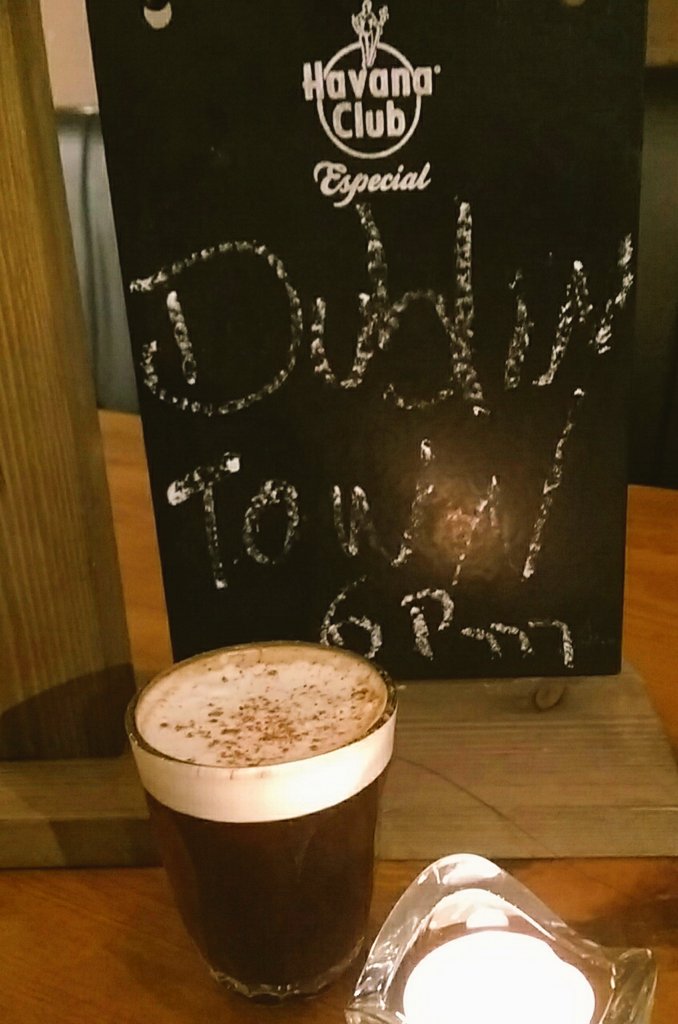 Havana
Club
Especial
Dublin
Town!
6 Pm